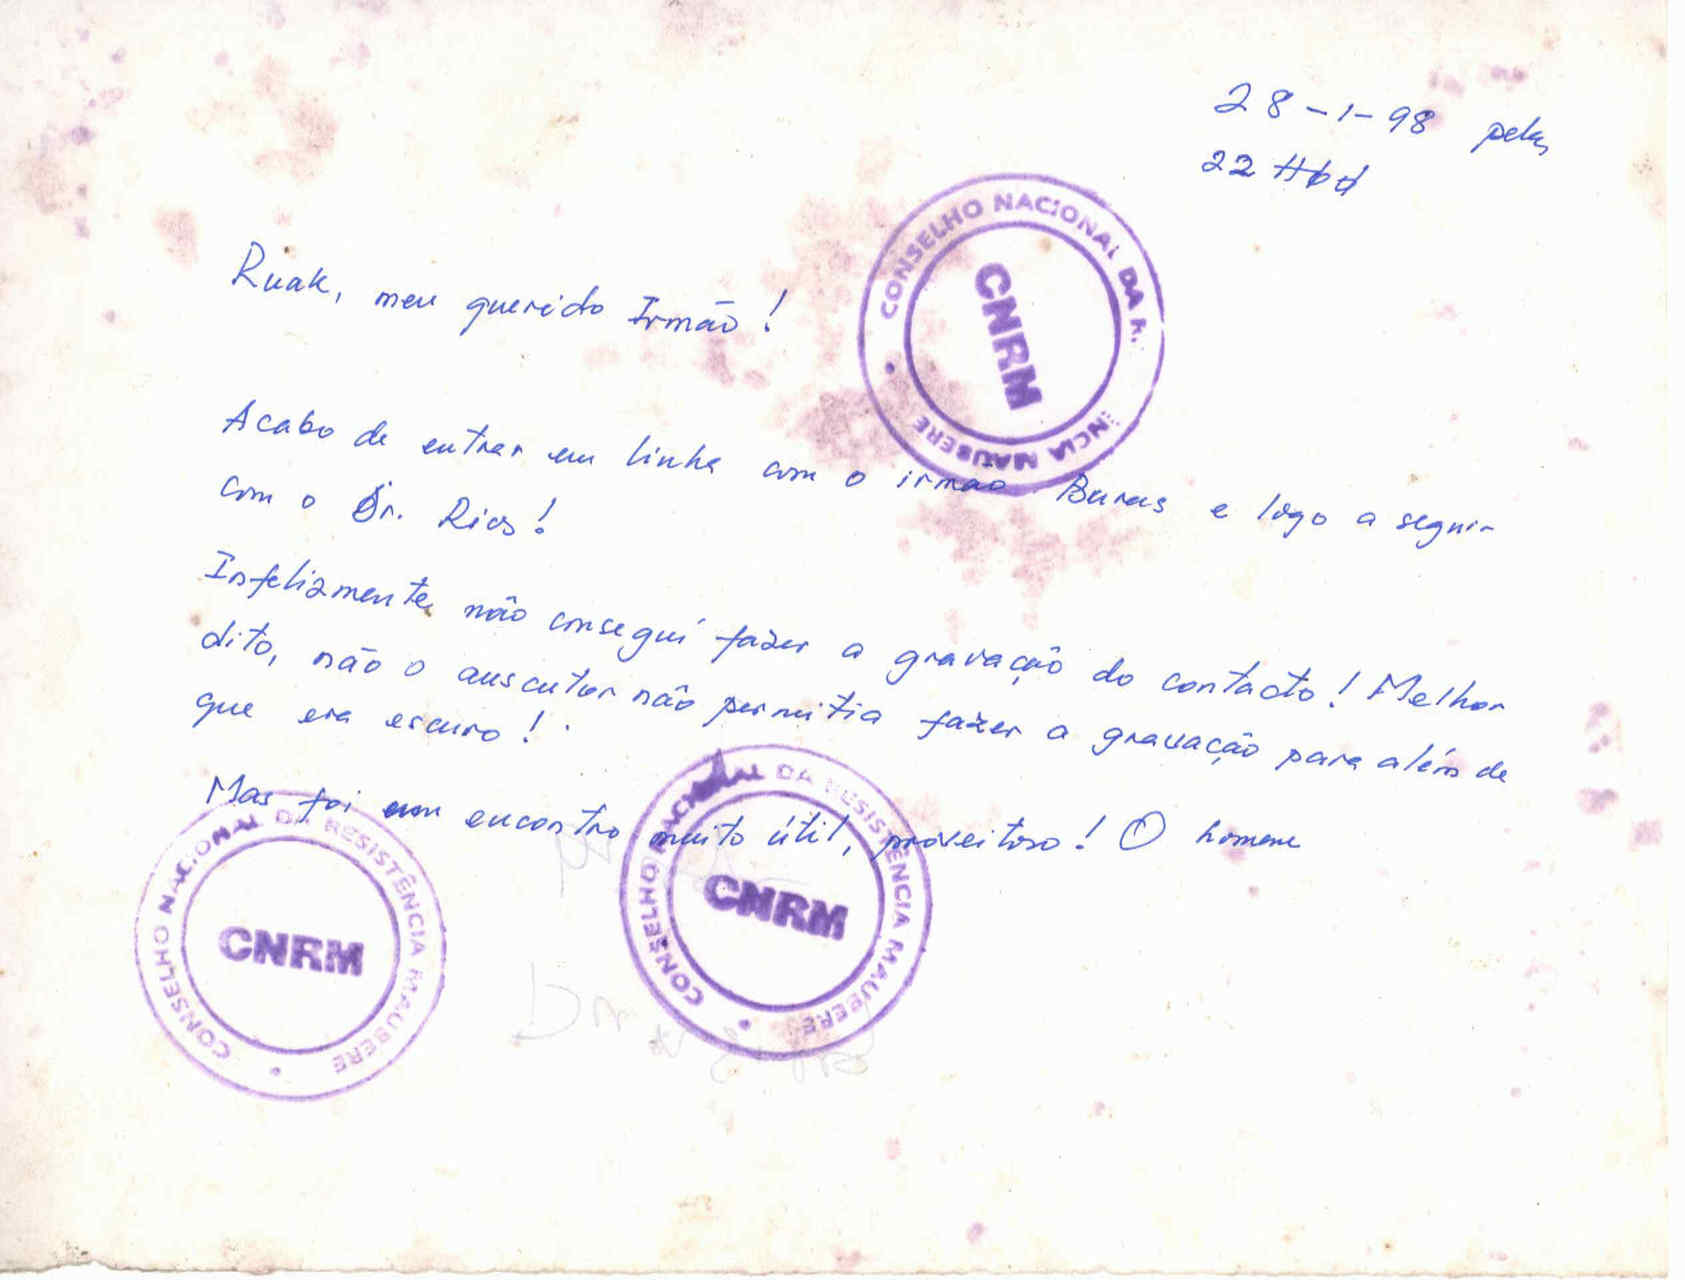 28-1-98 pelas
22H00
CONSELHO NACIONAL DA R. ÊNCIA MAUBERE
CNRM
Ruak, meu querido Irmão!
Acabo de entrar em linha com o irmão Buras e logo a seguir
com o Dr. Rios!
Infelizmente, não conseguí fazer a gravação do contacto! Melhor
dito, não o auscutor não permitia fazer a gravação para além de
que era escuro!
Mas foi um encontro muito útil, proveitoso! O homem
CONSELHO NACIONAL DA RESISTÊNCIA MAUBERE
CNRM
CONSELHO NACIONAL DA RESISTÊNCIA MAUBERE
CNRM